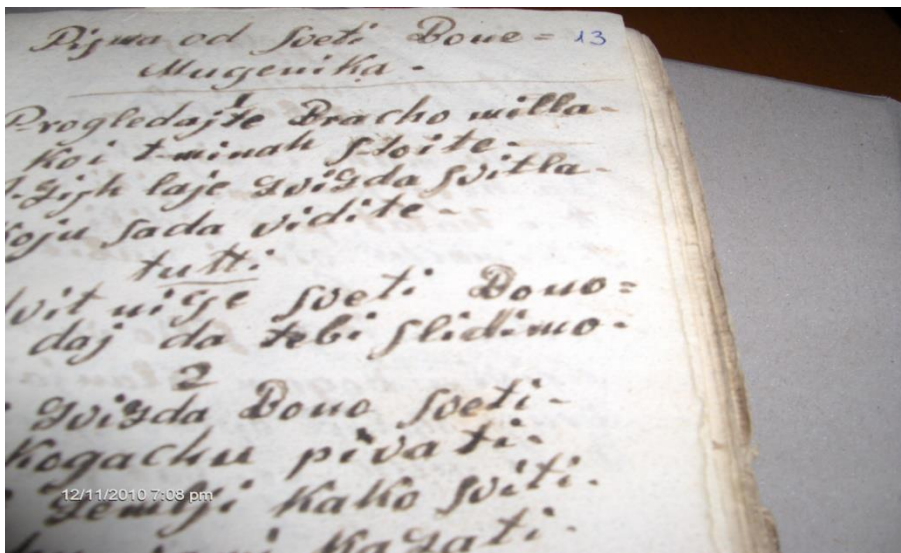 Pisma od Sveti Bone= 13
Mugenika.
1
Progledajte Bracho milla.
koi t-minah stoite.
laje zvizda svitla.
koju sada vidite.
tutti
svit nige sveti Bono=
daj da tebi slidimo.
2
zvizda Bono sveti.
Kogachu pivati.
zemlji kako sviti.
kazati.
12/11/2010 7:08 pm